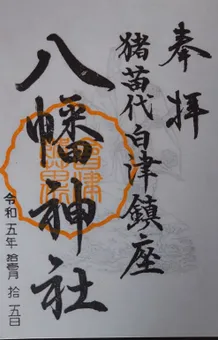 奉拝
猪苗代白津鎮座
八幡神社
令和五年 拾壱月 拾五日